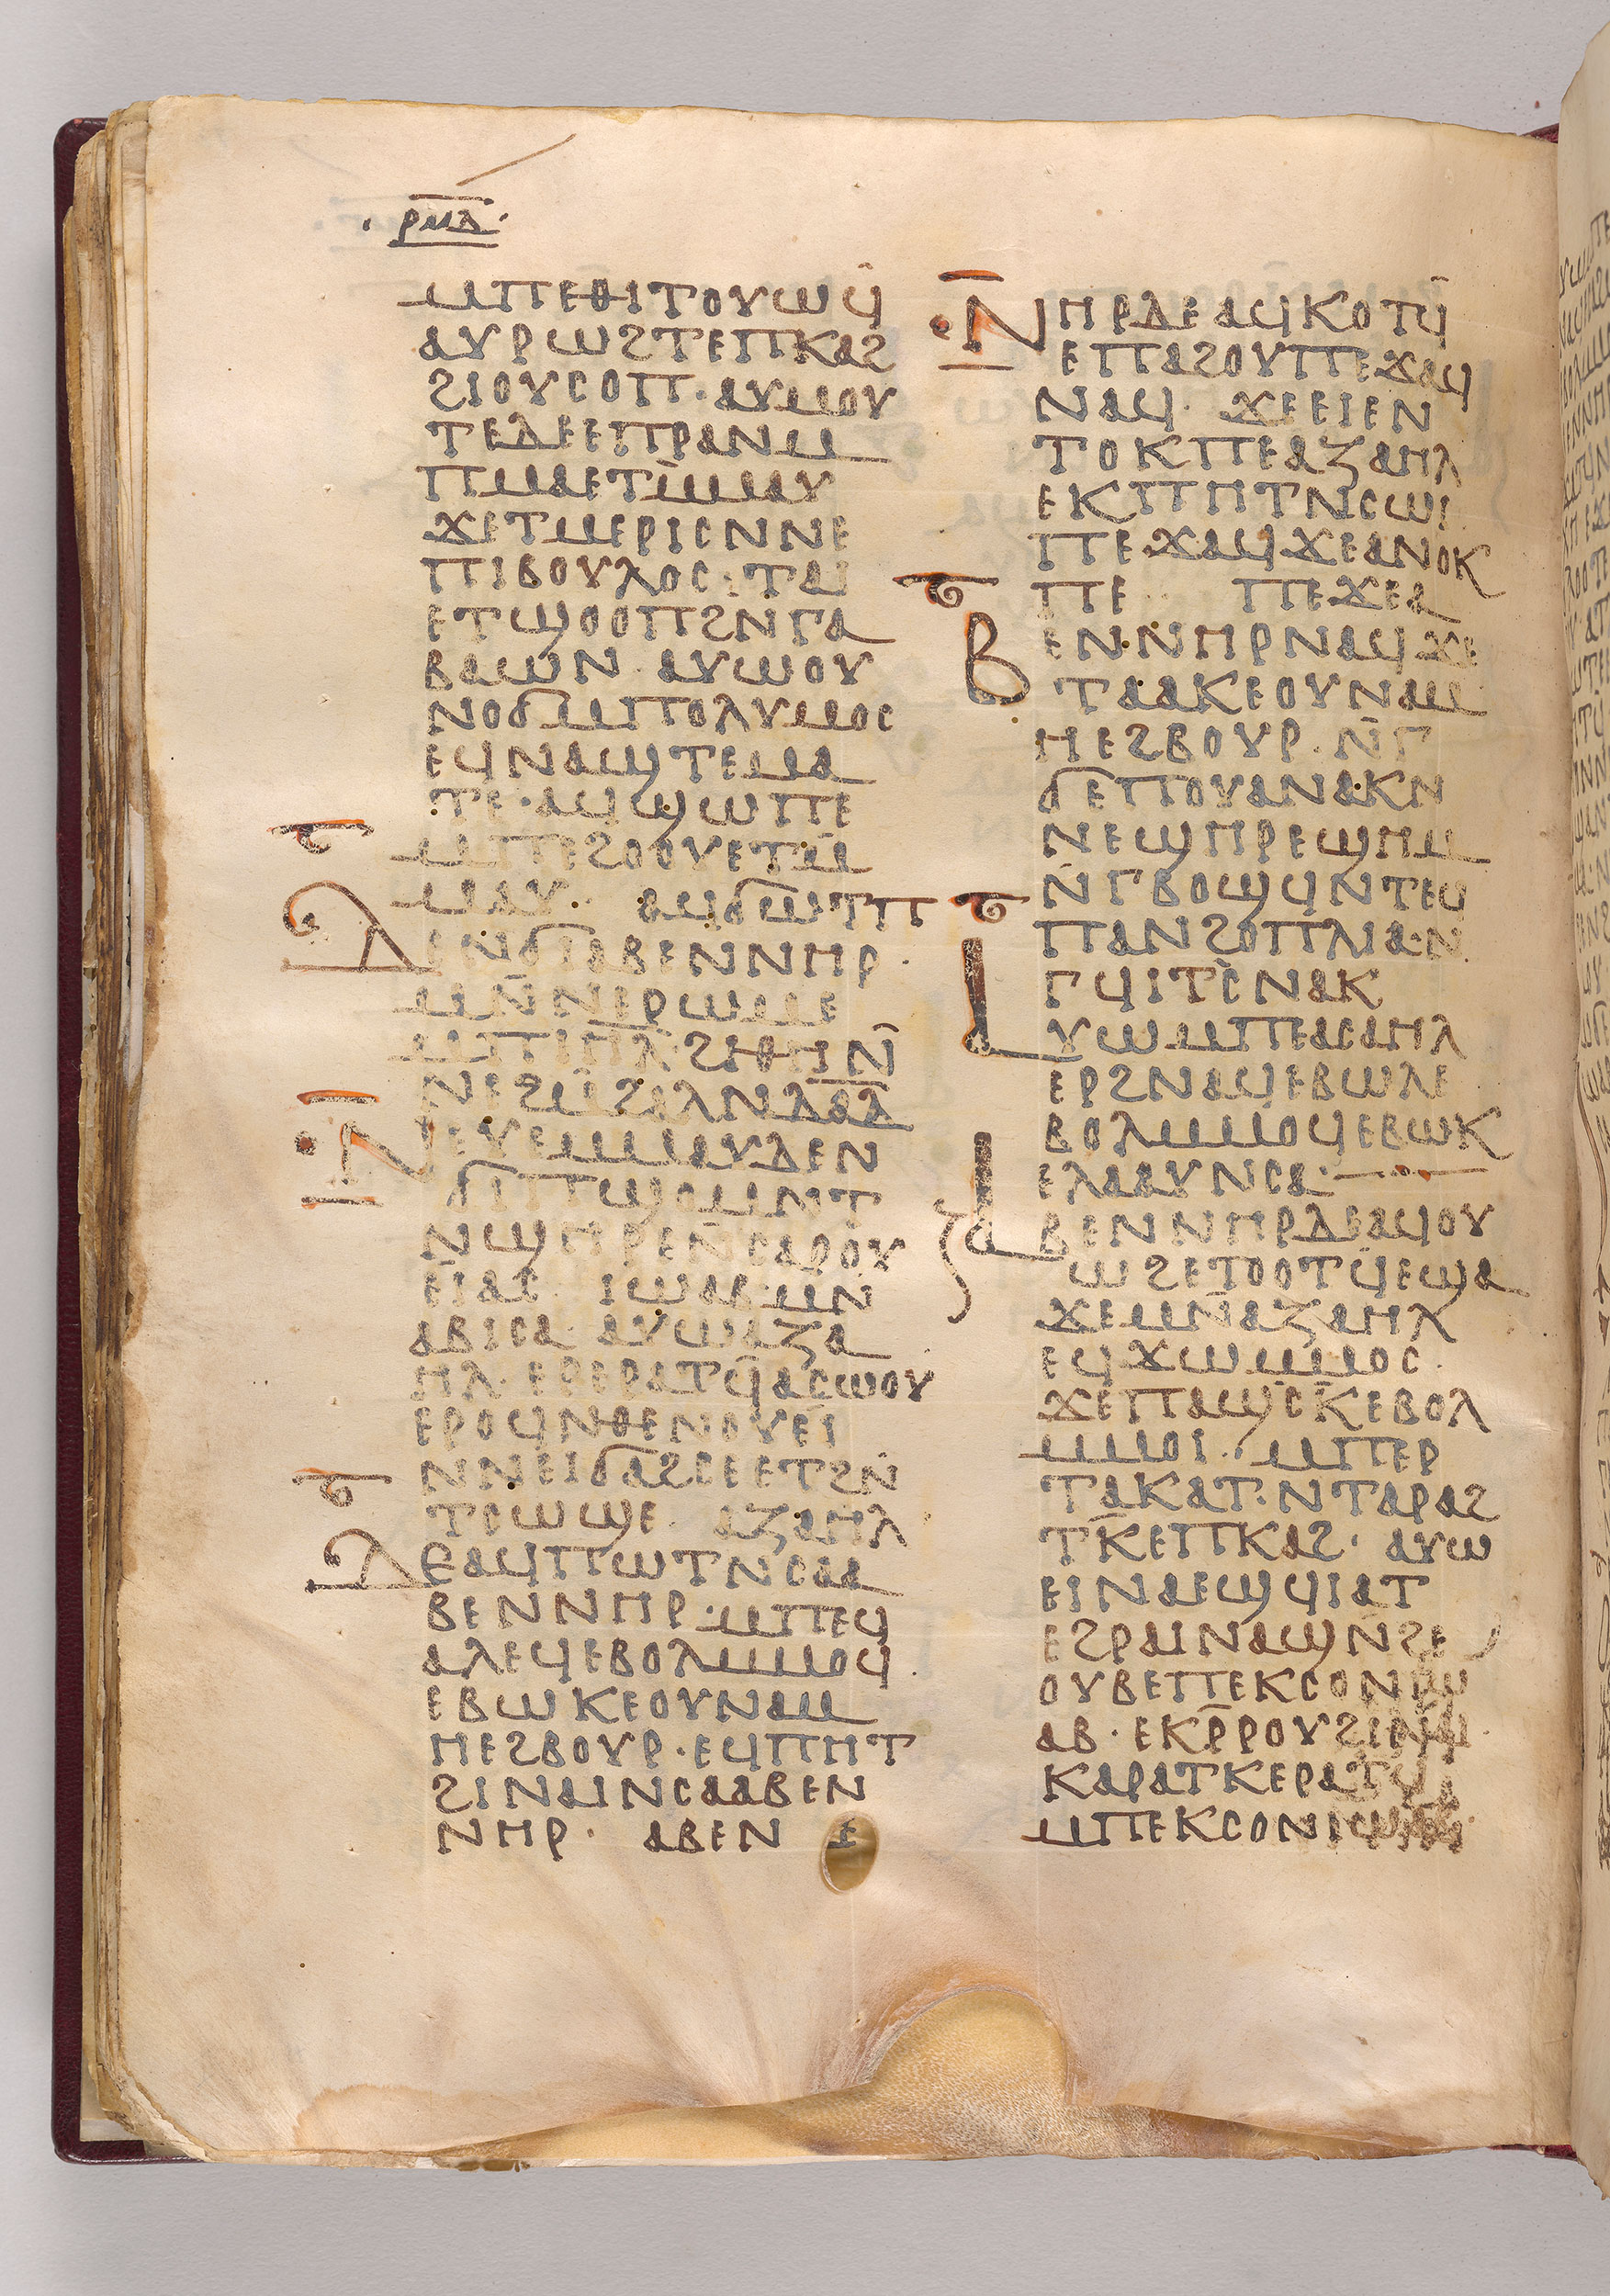 ⲣⲙⲇ
ⲙⲡⲉⲑⲓⲧⲟⲩⲱϥ̄
ⲁⲩⲣⲱϩⲧⲉⲡⲕⲁϩ
ϩⲓⲟⲩⲥⲟⲡ· ⲁⲩⲙⲟⲩ
ⲧⲉⲇⲉⲉⲡⲣⲁⲛⲙ
ⲡⲙⲁⲉⲧⲙ̄ⲙⲁⲩ
ϫⲉⲧⲙⲉⲣⲓⲥⲛⲛⲉ
ⲡⲓⲃⲟⲩⲗⲟⲥ· ⲧⲁⲓ
ⲉⲧϣⲟⲟⲡϩⲛⲅⲁ
ⲃⲁⲱⲛ ⲁⲩⲱⲟⲩ
ⲛⲟϭⲙⲡⲟⲗⲩⲙⲟⲥ
ⲉϥⲛⲁϣⲧⲉⲙⲁ
ⲧⲉ· ⲁϥϣⲱⲡⲉ
ⲙⲡⲉϩⲟⲟⲩⲉⲧⲙ̄
ⲙⲁⲩ· ⲁϥϭⲱⲧⲡ
ⲇⲉⲛϭⲓⲁⲃⲉⲛⲛⲏⲣ·
ⲙⲛ̄ⲛⲉⲣⲱⲙⲉ
ⲙⲡⲓⲏ̄ⲗ̄ ϩⲓⲑⲏⲛ̄
ⲛⲉϩⲙ̄ϩⲁⲗⲛⲇ̄ⲁ̄ⲇ̄
ⲛⲉⲩⲉⲙⲙⲁⲩⲇⲉⲛ
ϭⲓⲡϣⲟⲙⲛⲧ
ⲛϣⲏⲣⲉⲛ̄ⲥⲁⲣⲟⲩ
ⲉⲓⲁⲥ ⲓⲱⲁⲃ· ⲙⲛ̄
ⲁⲃⲓⲥⲁ· ⲁⲩⲱⲁⲍⲁ
ⲏⲗ· ⲉⲣⲉⲣⲁⲧϥ̄ⲁⲥⲱⲟⲩ
ⲉⲣⲟϥⲛⲑⲉⲛⲟⲩⲉⲓ
ⲛⲛⲉⲓϭⲁϩⲥⲉⲉⲧϩⲛ̄
ⲧⲥⲱϣⲉ· ⲁⲍⲁⲏⲗ
ⲇⲉⲁϥⲡⲱⲧⲛⲥⲁⲁ
ⲃⲉⲛⲛⲏⲣ· ⲙⲡⲉϥ
ⲁⲗⲉϥⲉⲃⲟⲗⲙⲙⲟϥ
ⲉⲃⲱⲕⲉⲟⲩⲛⲁⲙ
ⲏⲉϩⲃⲟⲩⲣ· ⲉϥⲡⲏⲧ
ϩⲓⲛⲁⲓⲛⲥⲁⲁⲃⲉⲛ
ⲛⲏⲣ· ⲁⲃⲉⲛ ⲉ
ⲛⲏⲣⲇⲉⲁϥⲕⲟⲧϥ̄
ⲉⲡⲁϩⲟⲩⲡⲉϫⲁϥ
ⲛⲁϥ· ϫⲉⲉⲓⲉⲛ
ⲧⲟⲕⲡⲉⲁⲍⲁⲏⲗ
ⲉⲕⲡⲏⲧⲛⲥⲱⲓ
ⲡⲉϫⲁϥϫⲉⲁⲛⲟⲕ
ⲡⲉ· ⲡⲉϫⲉⲁ
ⲃⲉⲛⲛⲏⲣⲛⲁϥϫⲉ
ⲧⲁⲁⲕⲉⲟⲩⲛⲁⲙ
ⲏⲉϩⲃⲟⲩⲣ· ⲛ̄ⲅ
ϭⲉⲡⲟⲩⲁⲛⲁⲕⲛ
ⲛⲉϣⲏⲣⲉϣⲏⲙ
ⲛ̄ⲅⲃⲟϣϥⲛⲧⲉϥ
ⲡⲁⲛϩⲟⲡⲗⲓⲁ·ⲛ
ⲅϥⲓⲧⲥ̄ⲛⲁⲕ
ⲁⲩⲱⲙⲡⲉⲁⲥⲁⲏⲗ
ⲉⲣϩⲛⲁϥⲉⲃⲱⲗⲉ
ⲃⲟⲗⲙⲙⲟϥⲉⲃⲱⲕ
ⲉⲗⲁⲁⲩⲛⲥⲁ·
ⲁⲃⲉⲛⲛⲏⲣⲇⲉⲁϥⲟⲩ
ⲱϩⲉⲧⲟⲟⲧϥ̄ⲉϣⲁ
ϫⲉⲙⲛ̄ⲁⲍⲁⲏⲗ
ⲉϥϫⲱⲙⲙⲟⲥ·
ϫⲉⲡⲁϣⲥ̄ⲕⲉⲃⲟⲗ
ⲙⲙⲟⲓ· ⲙⲡⲉⲣ
ⲧⲁⲕⲁⲧ·ⲛⲧⲁⲣⲁϩ
ⲧⲕ̄ⲉⲡⲕⲁϩ· ⲁⲩⲱ
ⲉⲓⲛⲁⲉϣϥⲓⲁⲧ
ⲉϩⲣⲁⲓⲛⲁϣⲛ̄ϩⲉ
ⲟⲩⲃⲉⲡⲉⲕⲥⲟⲛⲓⲱ
ⲁⲃ· ⲉⲕⲣ̄ⲣⲟⲩϩⲓⲛⲁⲓ
ⲕⲁⲣⲁⲧⲕⲉⲣⲁⲧϥ
ⲙⲡⲉⲕⲥⲟⲛⲓⲱⲁⲃ